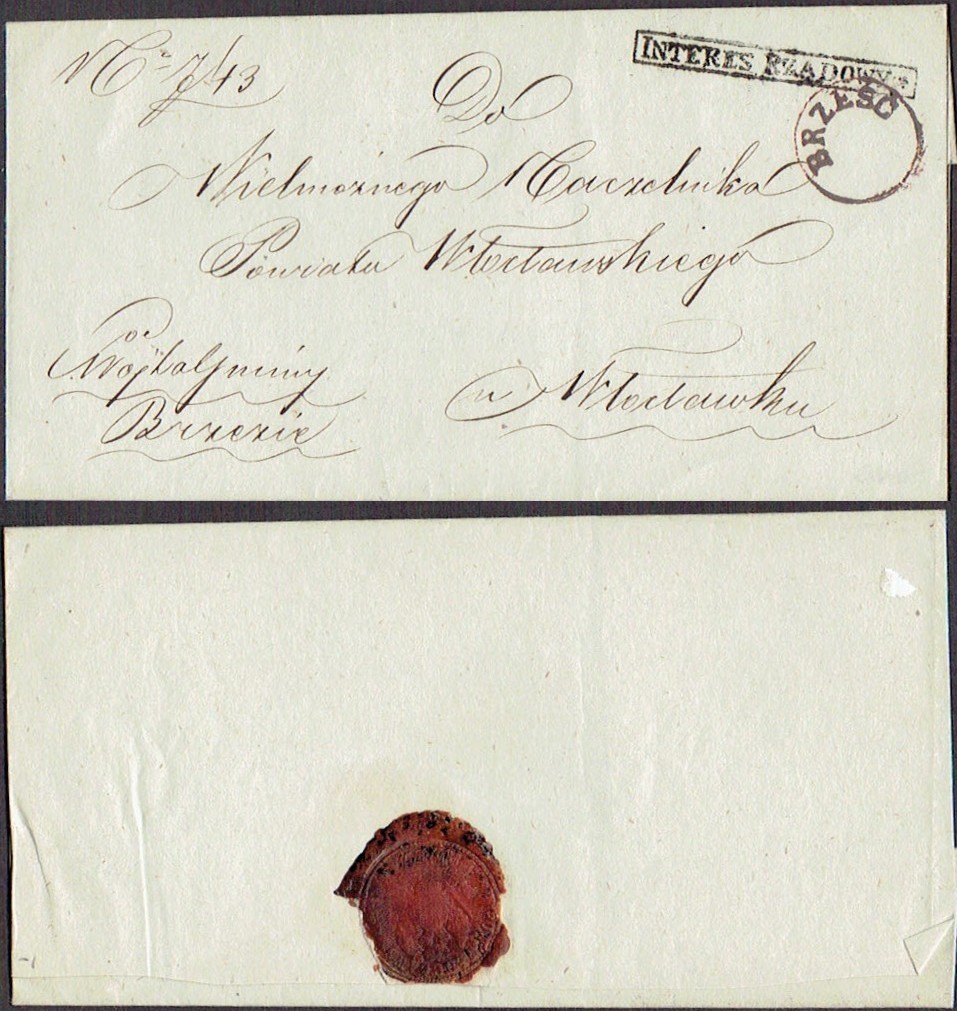 No 743
INTERES RZĄDOWY
BRZEŚĆ
Do
Wielmożnego Naczelnika
Powiatu Włocławskiego
w Włocławku
Wójta Gminy
Brzezie